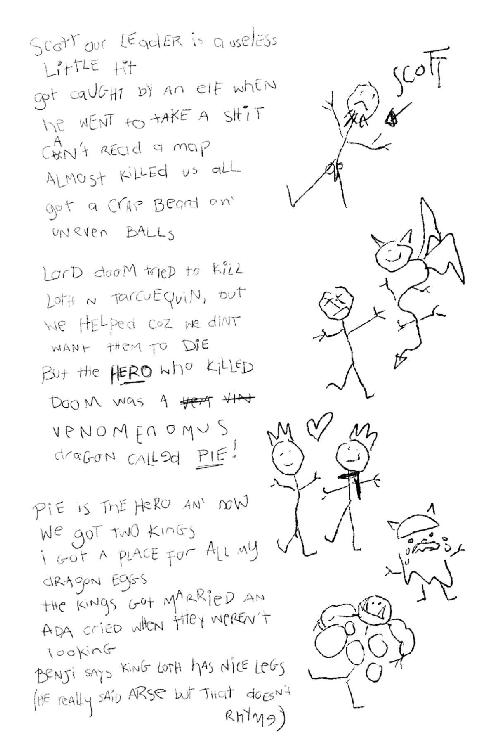 Scott our LEADER is a useless
LITTLE tit
got CAUGHT BY AN elf WHEN
he WENT to tAKE A SHiT
CAN't READ a map
ALMOST KiLLED us all
got a CRAP BEARD an'
UNEVEN BALLS
SCOTT
LORD dooM tRiED to KiLL
LOTH N TARCUEQUIN, but
we HELPED COZ WE diNT
WANT tHEM TO DiE
But the HERO who KiLLED
DOOM WAS A
VENOMENOMUS
dRAGON CALLED PIE!
PiE iS THE HERO AN' NOW
WE GOT TWO KINGS
i GOT A PLACE FOR ALL MY
dRAGON EGGS
tHE KINGS GOT MARRiED AN
ADA CRiED WHEN THEY WEREN'T
looking
BENJi SAYS KING LOTH HAS NICE LEGS
(HE REALLY SAiD ARSE but THAT dOESN't
RHYME)